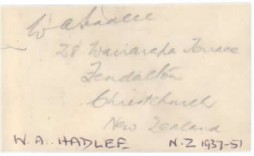 W A Hadlee
28 Waiwetu Terrace
Fendalton
Christchurch
New Zealand
W. A. HADLEE N.Z 1937-51